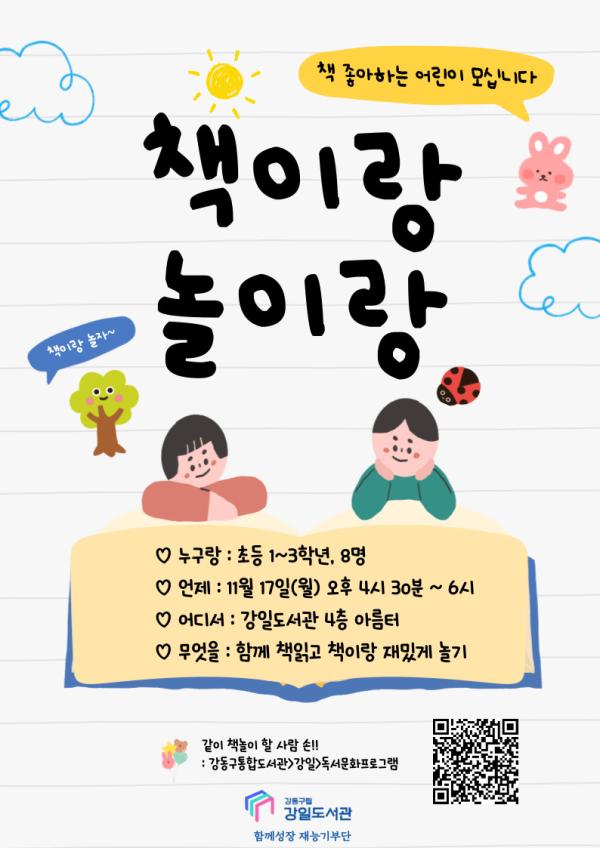 책 좋아하는 어린이 모십니다
책이랑
놀이랑
책이랑 놀자~
♡ 누구랑 : 초등 1~3학년, 8명
♡ 언제 : 11월 17일(월) 오후 4시 30분 ~ 6시
♡ 어디서 : 강일도서관 4층 아름터
♡ 무엇을 : 함께 책읽고 책이랑 재밌게 놀기
같이 책놀이 할 사람 손!!
: 강동구통합도서관>강일>독서문화프로그램
강동구립
강일도서관
함께성장 재능기부단